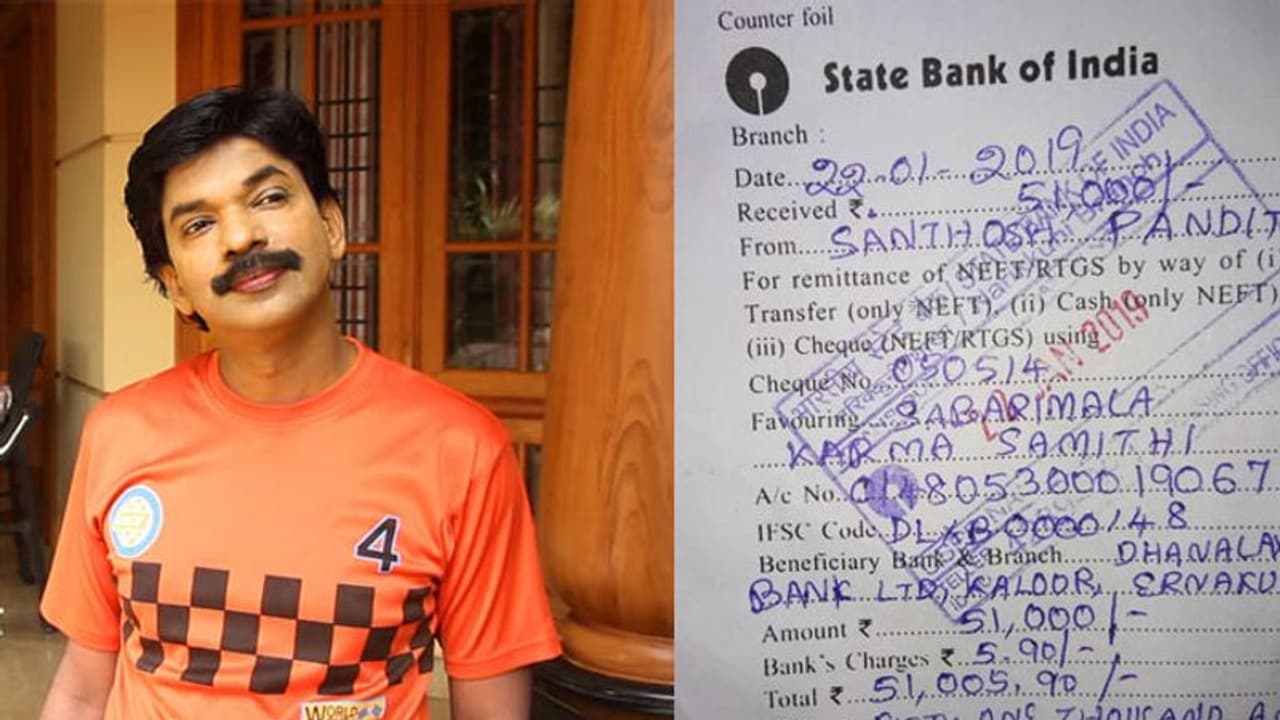 4
WORLD
Counter foil
State Bank of India
Branch :
Date 22-01-2019
Received ₹ 51,000/-
From SANTHOSH PANDIT
For remittance of NEFT/RTGS by way of (i)
Transfer (only NEFT), (ii) Cash (only NEFT)
(iii) Cheque (NEFT/RTGS) using
Cheque No. 050514
Favouring SABARIMALA
KARMA SAMITHI
A/c No. 014805300019067
IFSC Code DLXB0000148
Beneficiary Bank & Branch DHANALA
BANK LTD, KALOOR, ERNAKU
Amount ₹ 51,000/-
Bank's Charges ₹ 5.90/-
Total ₹ 51,005.90/-